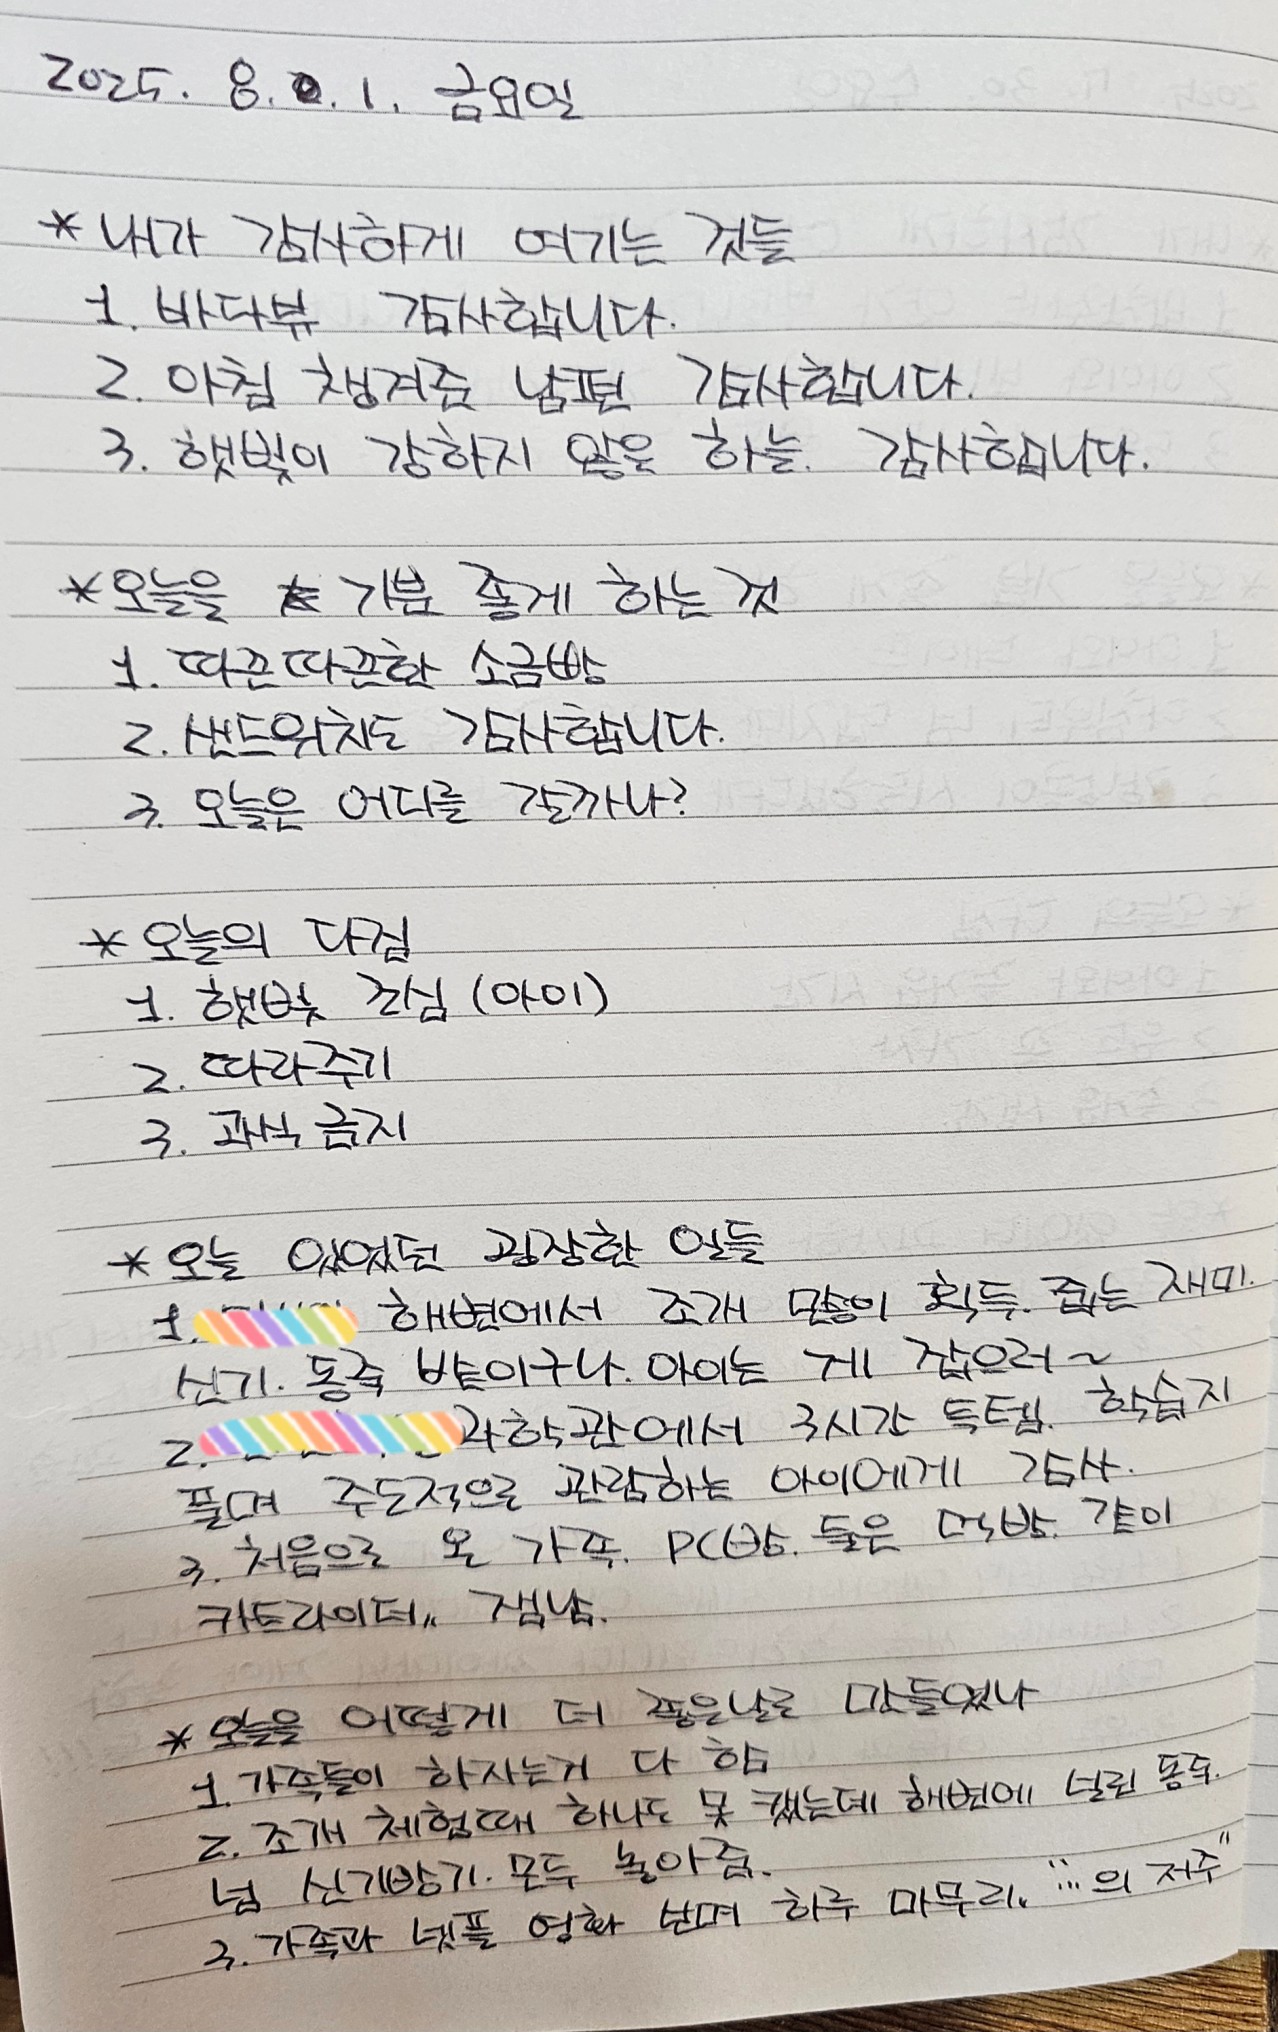 2025. 8. 1. 금요일
* 내가 감사하게 여기는 것들
1. 바다뷰 감사합니다.
2. 아침 챙겨준 남편 감사합니다.
3. 햇빛이 강하지 않은 하늘. 감사합니다.
* 오늘을 기분 좋게 하는 것
1. 따끈따끈한 소금빵
2. 샌드위치도 감사합니다.
3. 오늘은 어디를 갈까나?
* 오늘의 다짐
1. 햇빛 조심 (아이)
2. 따라주기
3. 과식 금지
* 오늘 있었던 굉장한 일들
1. 해변에서 조개 많이 획득. 줍는 재미.
신기. 동죽 밭이구나. 아이는 게 잡으러~
2. 과학관에서 3시간 득템. 학습지
풀며 주도적으로 관람하는 아이에게 감사.
3. 처음으로 온 가족. PC방. 둘은 먹방. 같이
카트라이더,, 잼남.
* 오늘을 어떻게 더 좋은날로 만들었나
1. 가족들이 하자는거 다 함
2. 조개 체험때 하나도 못 캤는데 해변에 널린 동죽.
넘 신기방기. 모두 놓아줌.
3. 가족과 넷플 영화 보며 하루 마무리. 의 저주"